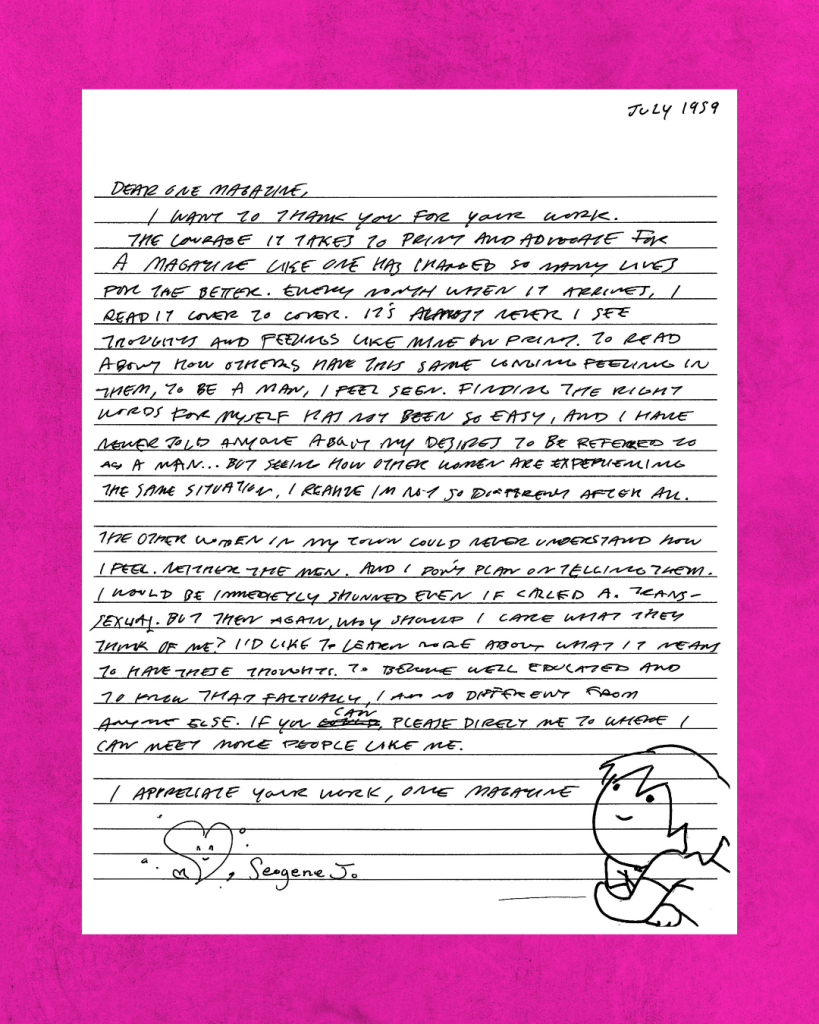 JULY 1959
DEAR ONE MAGAZINE,
I WANT TO THANK YOU FOR YOUR WORK.
THE COURAGE IT TAKES TO PRINT AND ADVOCATE FOR
A MAGAZINE LIKE ONE HAS CHANGED SO MANY LIVES
FOR THE BETTER. EVERY MONTH WHEN IT ARRIVES, I
READ IT COVER TO COVER. IT'S ALMOST NEVER I SEE
THOUGHTS AND FEELINGS LIKE MINE ON PRINT. TO READ
ABOUT HOW OTHERS HAVE THIS SAME LONGING FEELING IN
THEM, TO BE A MAN, I FEEL SEEN. FINDING THE RIGHT
WORDS FOR MYSELF HAS NOT BEEN SO EASY, AND I HAVE
NEVER TOLD ANYONE ABOUT MY DESIRES TO BE REFERRED TO
AS A MAN... BUT SEEING HOW OTHER WOMEN ARE EXPERIENCING
THE SAME SITUATION, I REALIZE I'M NOT SO DIFFERENT AFTER ALL.
THE OTHER WOMEN IN MY TOWN COULD NEVER UNDERSTAND HOW
I FEEL. NEITHER THE MEN. AND I DON'T PLAN ON TELLING THEM.
I WOULD BE IMMEDIETLY SHUNNED EVEN IF CALLED A. TRANS-
SEXUAL. BUT THEN AGAIN, WHY SHOULD I CARE WHAT THEY
THINK OF ME? I'D LIKE TO LEARN MORE ABOUT WHAT IT MEANS
TO HAVE THESE THOUGHTS. TO BECOME WELL EDUCATED AND
TO KNOW THAT FACTUALLY, I AM NO DIFFERENT FROM
ANYONE ELSE. IF YOU CAN, PLEASE DIRECT ME TO WHERE I
CAN MEET MORE PEOPLE LIKE ME.
I APPRECIATE YOUR WORK, ONE MAGAZINE
Seogene J.